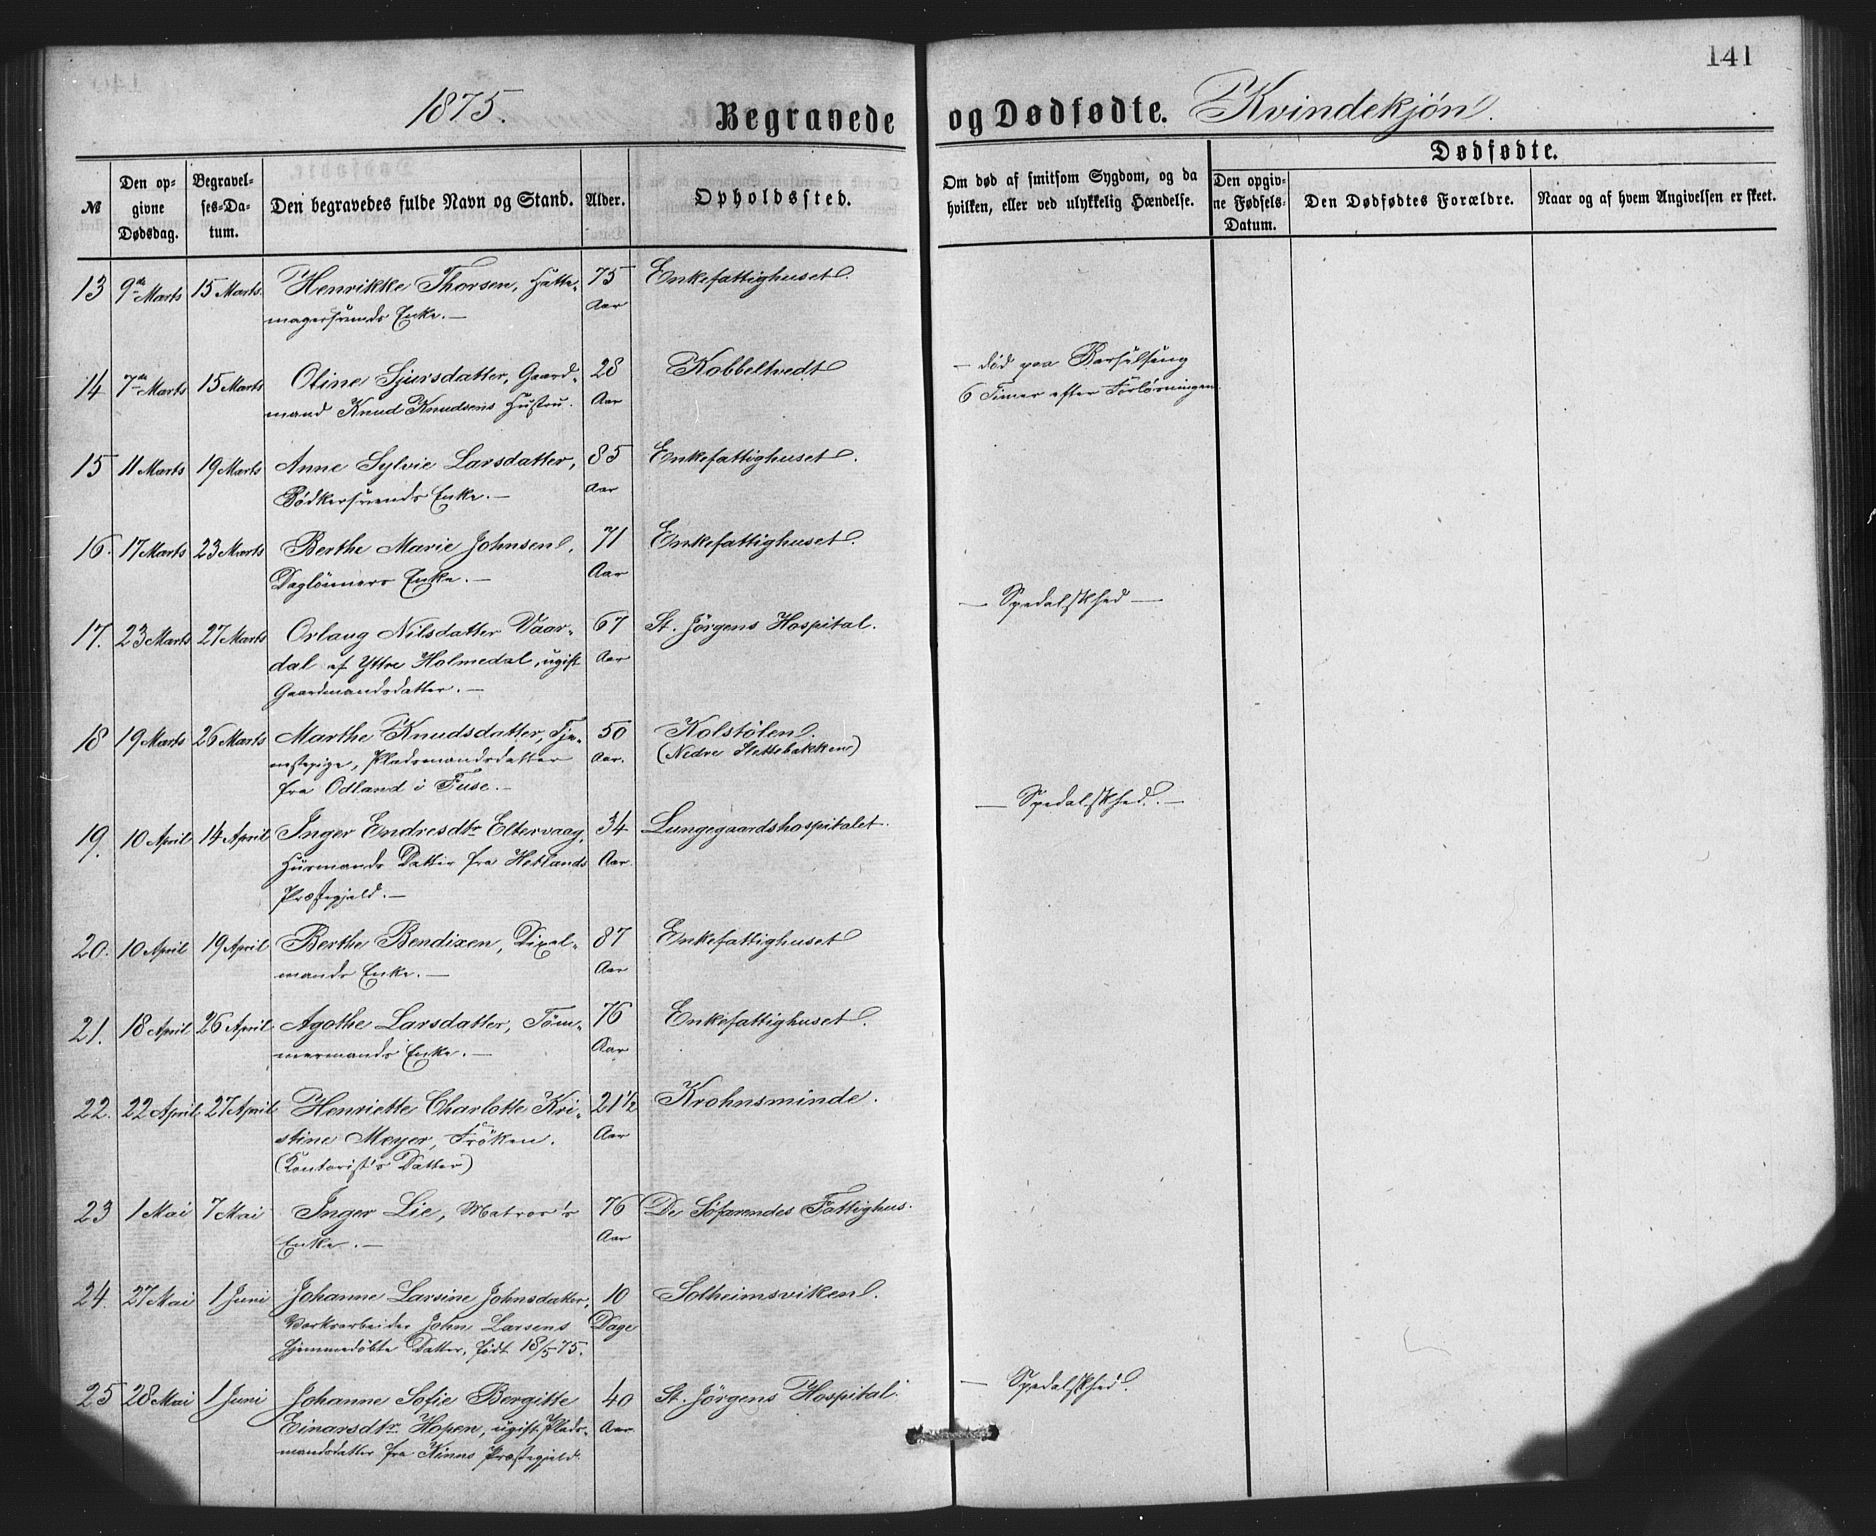 141
1875. Begravede og Dødfødte. Kvindekjøn.
№ | Den opgivne Dødsdag. | Begravelses-Datum. | Den begravedes fulde Navn og Stand. | Alder. | Opholdssted. | Om død af smitsom Sygdom, og da hvilken, eller ved ulykkelig Hændelse. | Dødfødte. | Den opgivne Fødsels-Datum. | Den Dødfødtes Forældre. | Naar og af hvem Angivelsen er skeet.
13 9de Marts 15 Marts. Henrikke Thorsen, Hatte- 75 Enkefattighuset.
magersvends Enke. — Aar
14 7de Marts 15 Marts Oline Sjursdatter, Gaard- 28 Kobbeltvedt — død paa Barselseng
mand Knud Knudsens Hustru. Aar 6 Timer efter Forløsningen.
15 11 Marts 19 Marts Anne Sylvie Larsdatter, 85 Enkefattighuset.
Bödkersvends Enke. — Aar
16. 17 Marts 23 Marts Berthe Marie Johnsen, 71 Enkefattighuset.
Daglönners Enke. — Aar
17. 23 Marts 27 Marts Orlaug Nilsdatter Vaar- 67 St. Jörgens Hospital. — Spedalskhed —
dal af Yttre Holmedal, ugift Aar
Gaardmandsdatter. —
18 19 Marts 26 Marts Marthe Knudsdatter, Tje- 50 Kolstölen.
nestepige, Pladsmandsdatter Aar. (Nedre Slettebakken)
fra Odland i Fuse. —
19. 10 April 14 April Inger Endresdtr Eltervaag, 34 Lungegaardshospitalet. — Spedalskhed. —
Husmands Datter fra Hetlands Aar.
Præstegjeld. —
20. 10 April 19 April Berthe Bendixen, 87 Enkefattighuset
mands Enke. — Aar
21. 18 April 26 April Agothe Larsdatter, Töm- 76 Enkefattighuset.
mermands Enke. — Aar
22. 22 April 27 April Henriette Charlotte Kri- 21½ Krohnsminde.
stine Meyer, Fröken. Aar
(Kontorist's Datter)
23 1 Mai 7 Mai Inger Lie, Matros's 76 De Söfarendes Fattighus.
Enke. — Aar
24. 27 Mai 1 Juni Johanne Larsine Johnsdatter, 10 Solheimsviken.
Værksarbeider John Larsens Dage
hjemmedöbte Datter, født 18/5 75.
25 28 Mai 1 Juni Johanne Sofie Bergitte 40 St. Jörgens Hospital. — Spedalskhed.
Einarsdtr Hopen, ugift Plads- Aar
mandsdatter fra Kinns Præstegjeld.